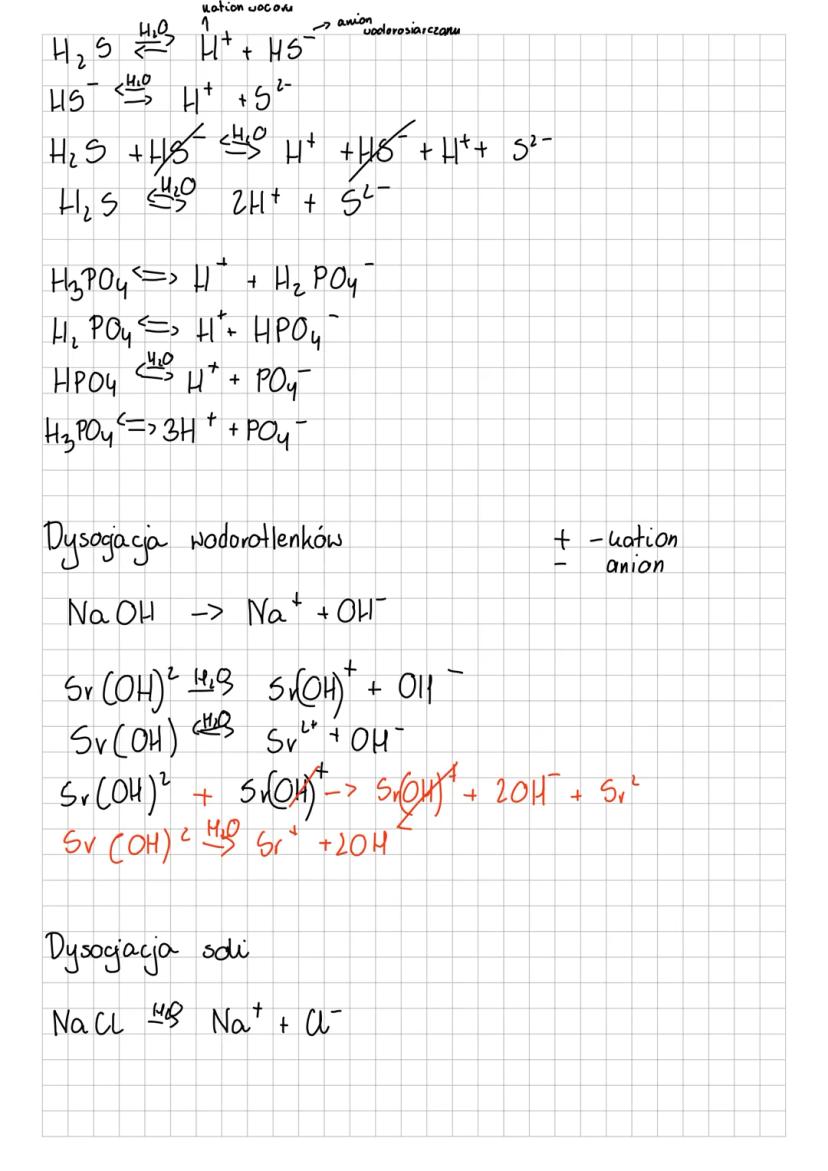 kation wodoru
→ anion wodorosiarczanu
H₂S ⇌ H₂O H⁺ + HS⁻
HS⁻ ⇌ H₂O H⁺ + S²⁻
H₂S + HS⁻ ⇌ H₂O H⁺ + HS⁻ + H⁺ + S²⁻
H₂S ⇌ H₂O 2H⁺ + S²⁻
H₃PO₄ <=> H⁺ + H₂PO₄⁻
H₂PO₄ <=> H⁺ + HPO₄⁻
HPO₄ ⇌ H₂O H⁺ + PO₄⁻
H₃PO₄ <=> 3H⁺ + PO₄⁻
Dysocjacja wodorotlenków
+ - kation
- anion
NaOH -> Na⁺ + OH⁻
Sr(OH)² H₂O → Sr(OH)⁺ + OH⁻
Sr(OH) ⇌ H₂O Sr²⁺ + OH⁻
Sr(OH)² + Sr(OH)⁺ -> Sr(OH)⁺ + 2OH⁻ + Sr²
Sr(OH)² H₂O → Sr⁺ + 2OH⁻
Dysocjacja soli
NaCl H₂O → Na⁺ + Cl⁻